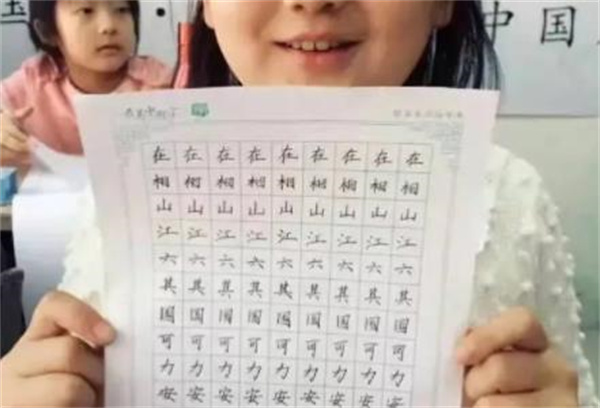 中国
在在在在在在在在在
相相相相相相相相相
山山山山山山山山山
江江江江江江江江江
六六六六六六六六六
其其其其其其其其其
国国国国国国国国国
可可可可可可可可可
力力力力力力力力力
安安安安安安安安安